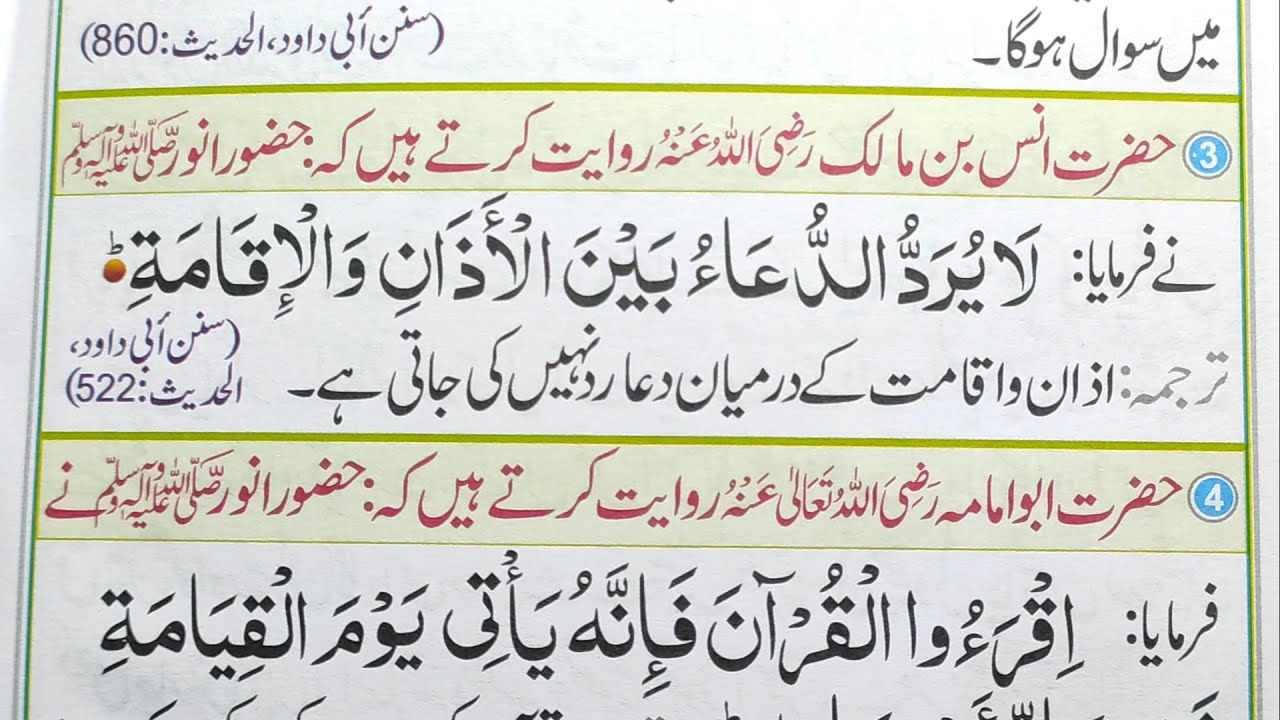 میں سوال ہوگا۔ (سنن أبی داود، الحدیث:860)
3 حضرت انس بن مالک رَضِیَ اللّٰهُ عَنْهُ روایت کرتے ہیں کہ: حضور انور صَلَّی اللّٰهُ عَلَیْهِ وَآلِهٖ وَسَلَّم
نے فرمایا: لَا یُرَدُّ الدُّعَاءُ بَیْنَ الْأَذَانِ وَالْإِقَامَةِ ؕ
ترجمہ: اذان واقامت کے درمیان دعا رد نہیں کی جاتی ہے۔ (سنن أبی داود،
الحدیث:522)
4 حضرت ابوامامہ رَضِیَ اللّٰهُ تَعَالٰی عَنْهُ روایت کرتے ہیں کہ: حضور انور صَلَّی اللّٰهُ عَلَیْهِ وَآلِهٖ وَسَلَّم نے
فرمایا: اِقْرَءُوا الْقُرْآنَ فَإِنَّهُ یَأْتِی یَوْمَ الْقِیَامَةِ